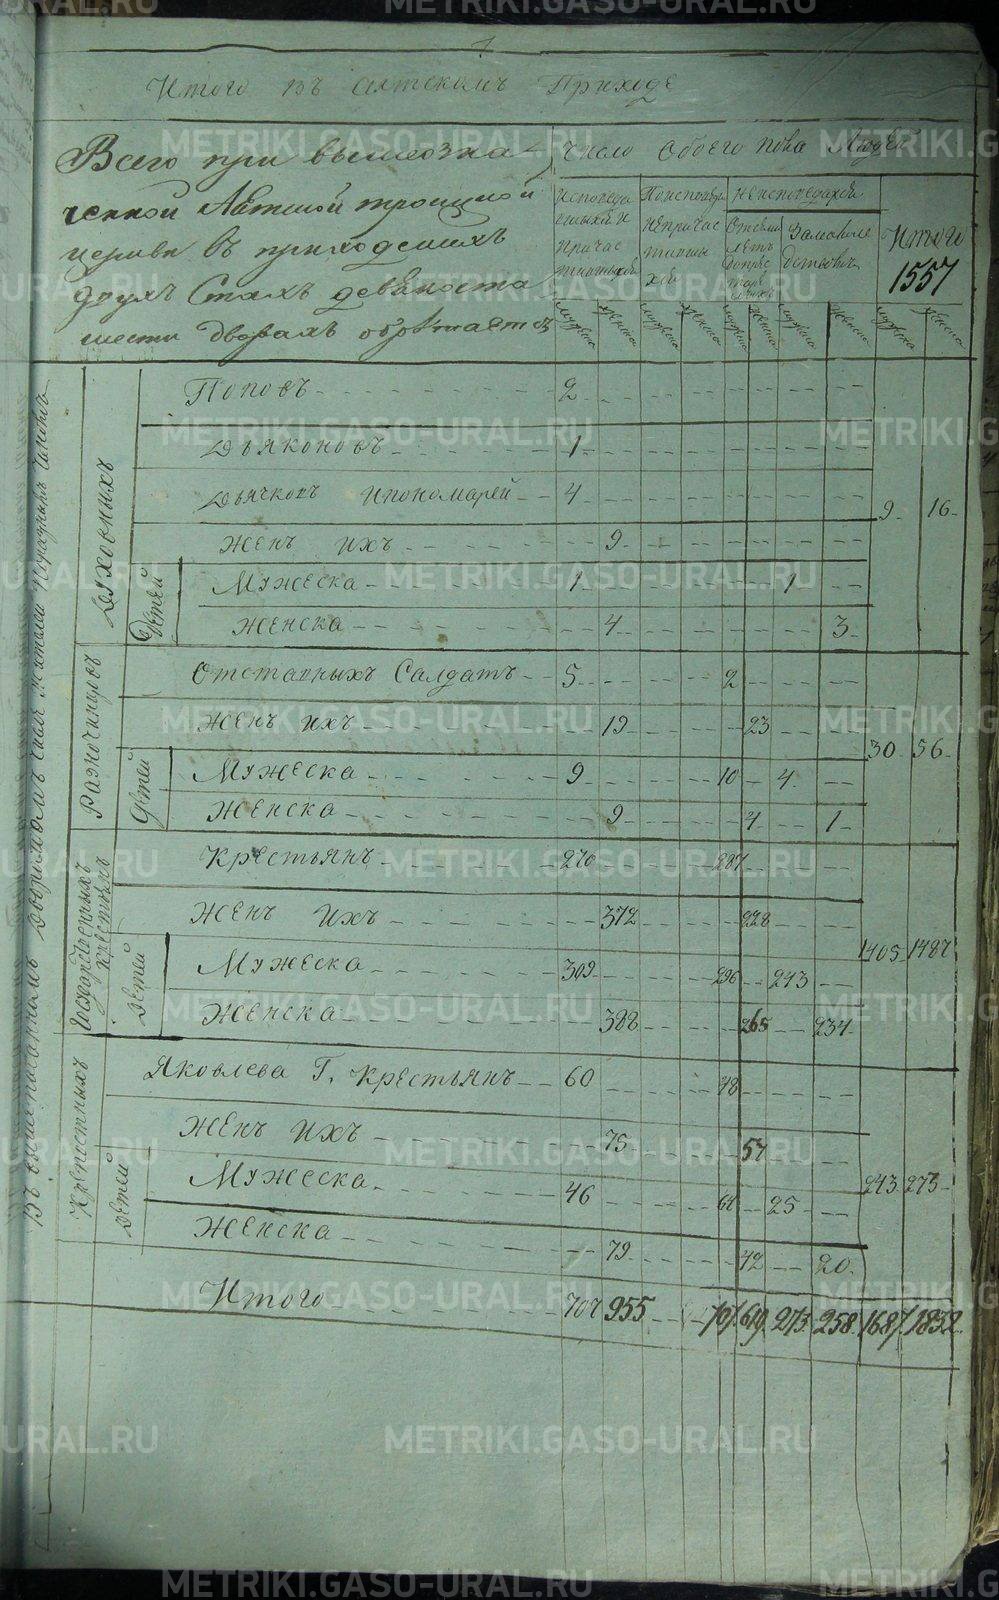 Итого въ Аятскомъ Приходе
Всего при вышеозна
ченной Аятской троицкой
церкви въ приходскихъ
двухъ Стахъ девяноста
шести дворахъ обретается
Число Обоего пола Людей
Исповеда
вшихся и
причас
тившихся
Неисповедахся
Отсемилетъ
За малолетством
Итого
1557
мужеска женска мужеска женска мужеска женска мужеска женска мужеска женска
Духовныхъ
Поповъ 2
Дьяконовъ 1
Дьячковъ Ипономарей 4
9 16
Женъ ихъ 9
Детей
Мужеска 1 1
Женска 4 3
Разночинцовъ
Отставныхъ Салдатъ 5 2
Женъ ихъ 19 23
30 56
Детей
Мужеска 9 10 4
Женска 9 4 1
Крестьянъ 270 287
Женъ ихъ 372 228
1405 1487
Детей
Мужеска 309 296 243
Женска 388 265 234
Крепостныхъ
Яковлева Г. Крестьянъ 60 48
Женъ ихъ 75 57
243 273
Детей
Мужеска 46 64 25
Женска 79 42 20
Итого 702 955 707 619 273 258 1687 1832
METRIKI.GASO-URAL.RU